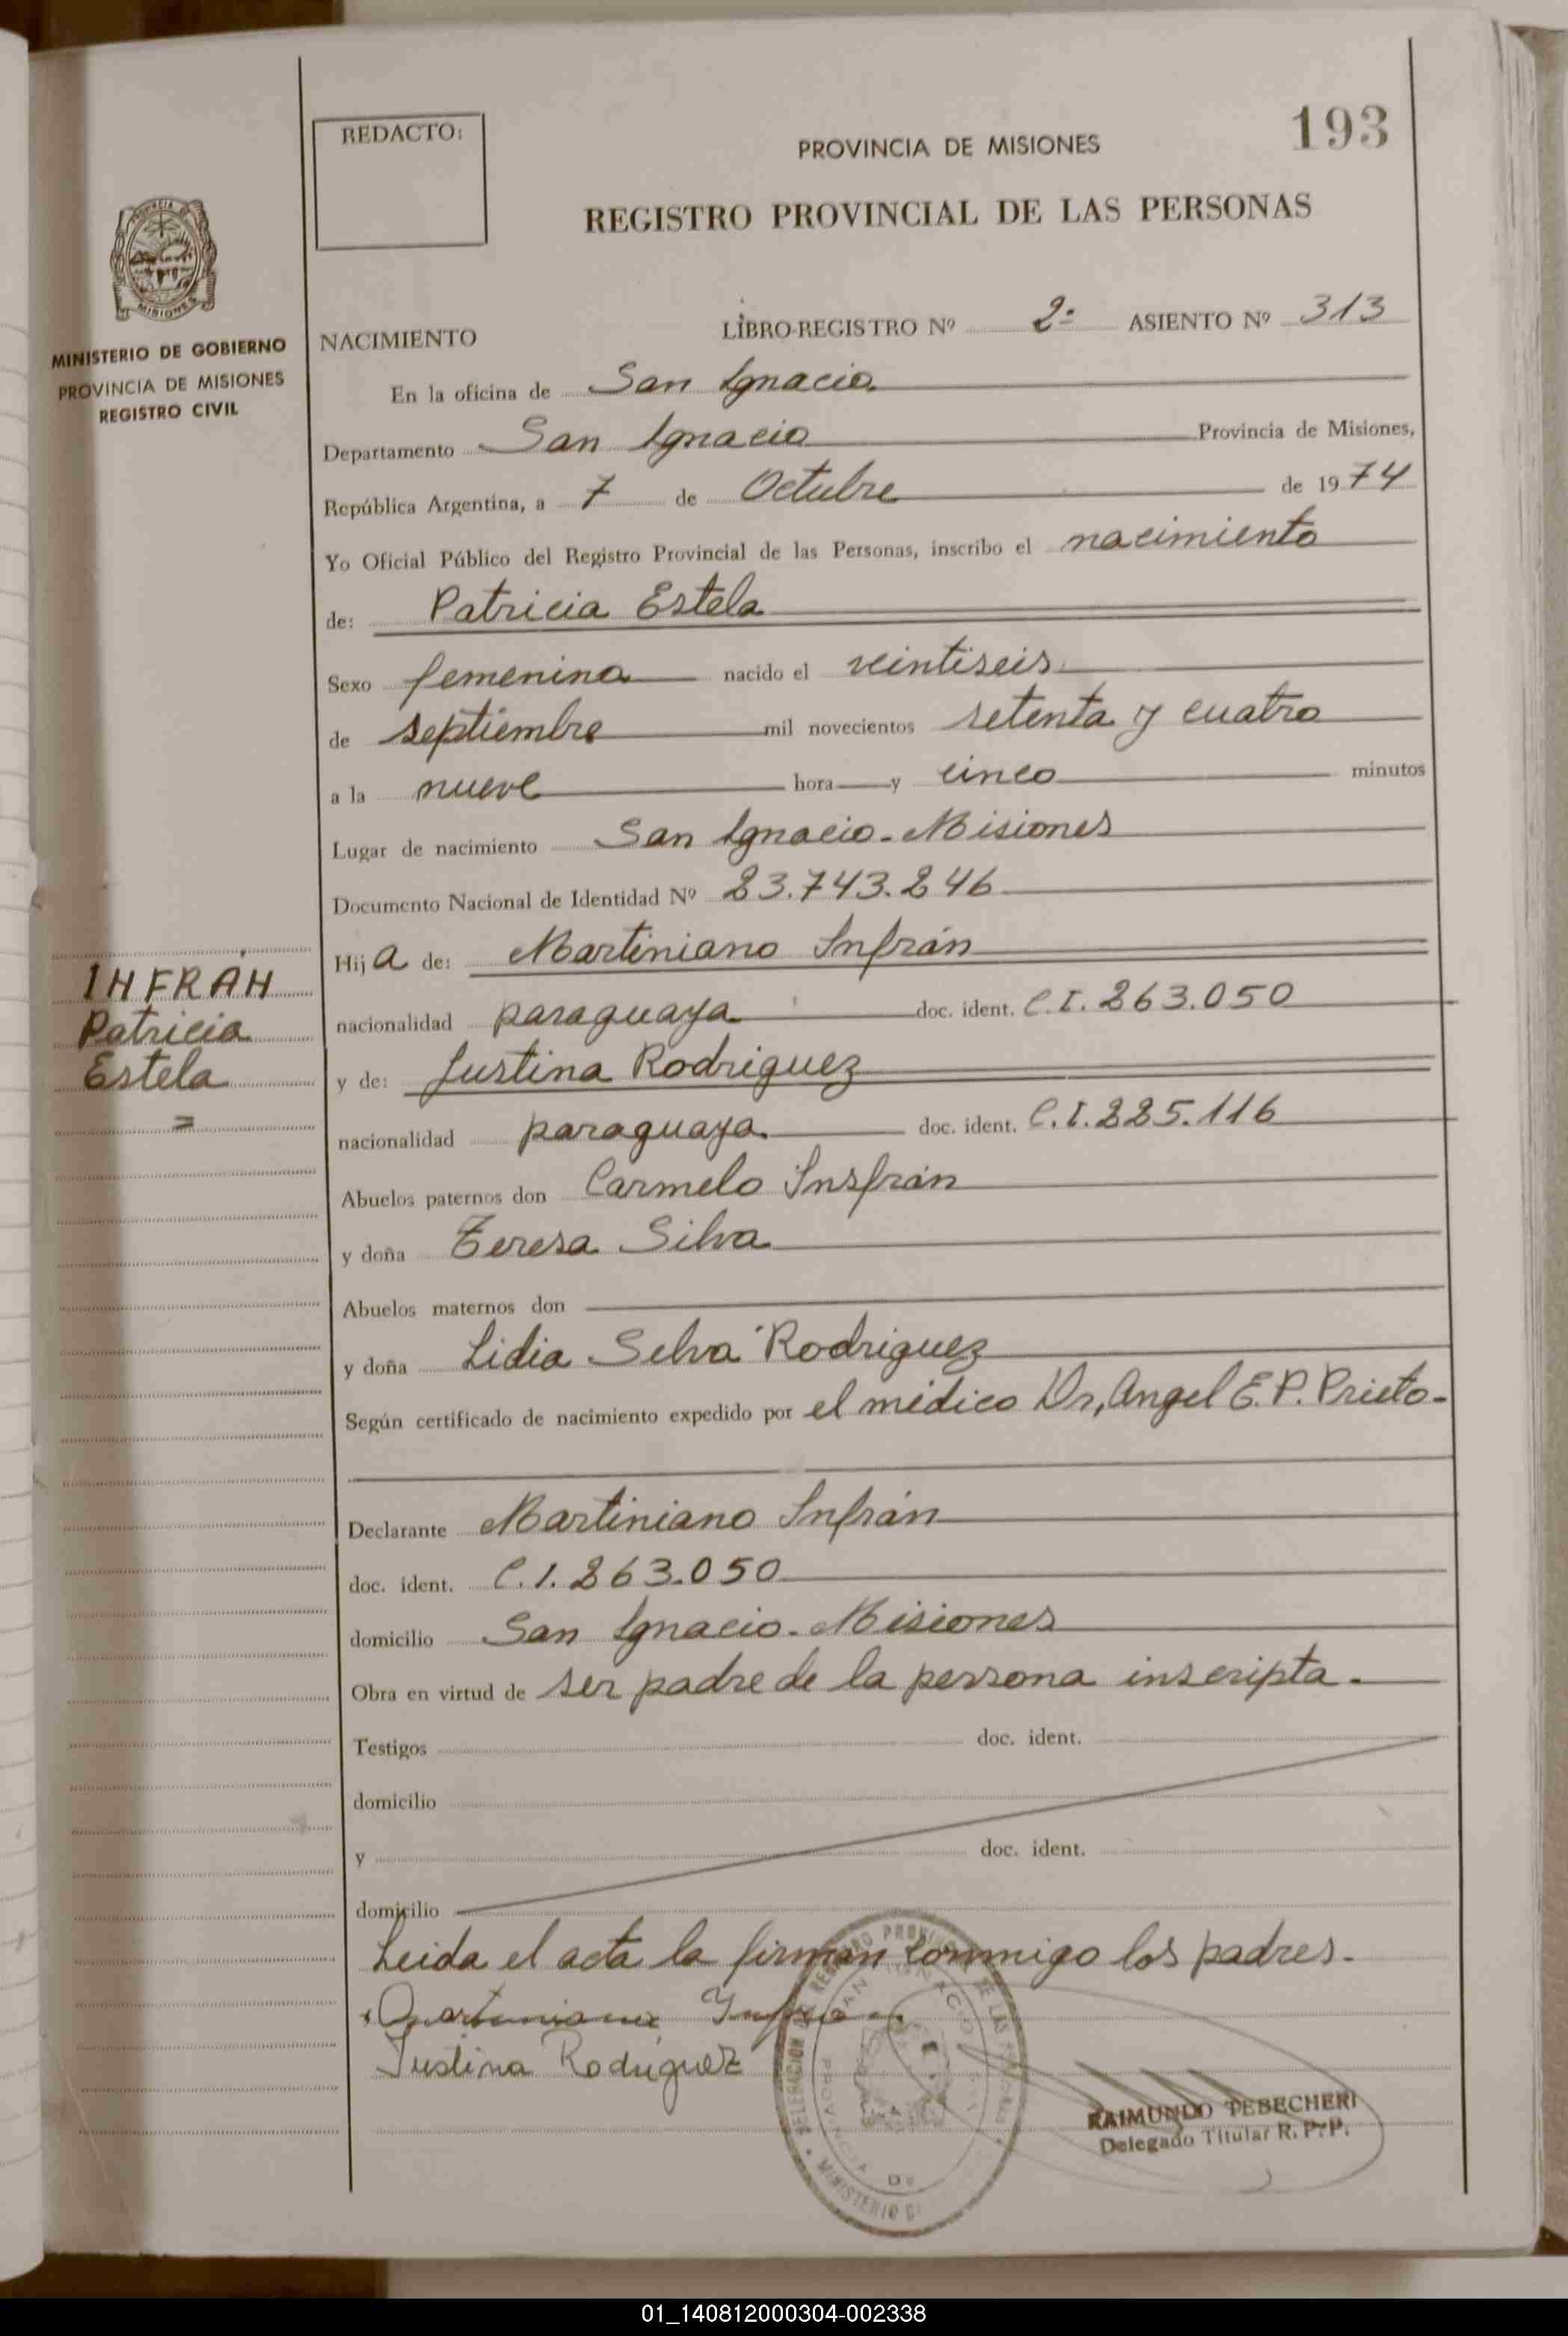 193
REDACTO:
PROVINCIA DE MISIONES
REGISTRO PROVINCIAL DE LAS PERSONAS
PROVINCIA DE
MISIONES
MINISTERIO DE GOBIERNO
PROVINCIA DE MISIONES
REGISTRO CIVIL
NACIMIENTO LIBRO-REGISTRO Nº 2º ASIENTO Nº 313
En la oficina de San Ignacio.
Departamento San Ignacio Provincia de Misiones,
República Argentina, a 7 de Octubre de 1974
Yo Oficial Público del Registro Provincial de las Personas, inscribo el nacimiento
de: Patricia Estela
Sexo femenino nacido el veintiseis
de septiembre mil novecientos setenta y cuatro
a la nueve hora y cinco minutos
Lugar de nacimiento San Ignacio-Misiones
Documento Nacional de Identidad Nº 23.743.246
INFRÁN
Patricia
Estela
=
Hija de: Martiniano Infrán
nacionalidad paraguaya doc. ident. C.I. 263.050
y de: Justina Rodriguez
nacionalidad paraguaya. doc. ident. C.I. 225.116
Abuelos paternos don Carmelo Insfrán
y doña Teresa Silva
Abuelos maternos don
y doña Lidia Selva Rodriguez
Según certificado de nacimiento expedido por el médico Dr, Angel E. P. Prieto-
Declarante Martiniano Infrán
doc. ident. C.I. 263.050
domicilio San Ignacio-Misiones
Obra en virtud de ser padre de la persona inscripta.
Testigos doc. ident.
domicilio
y doc. ident.
domicilio
Leida el acta la firman conmigo los padres.
Justina Rodriguez
RAIMUNDO TEBECHERI
Delegado Titular R. P. P.
01_140812000304-002338